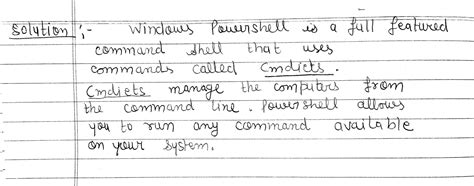 Solution :- Windows Powershell is a full featured
command shell that uses
commands called Cmdlets.
Cmdlets manage the computers from
the command line. Powershell allows
you to run any command available
on your System.